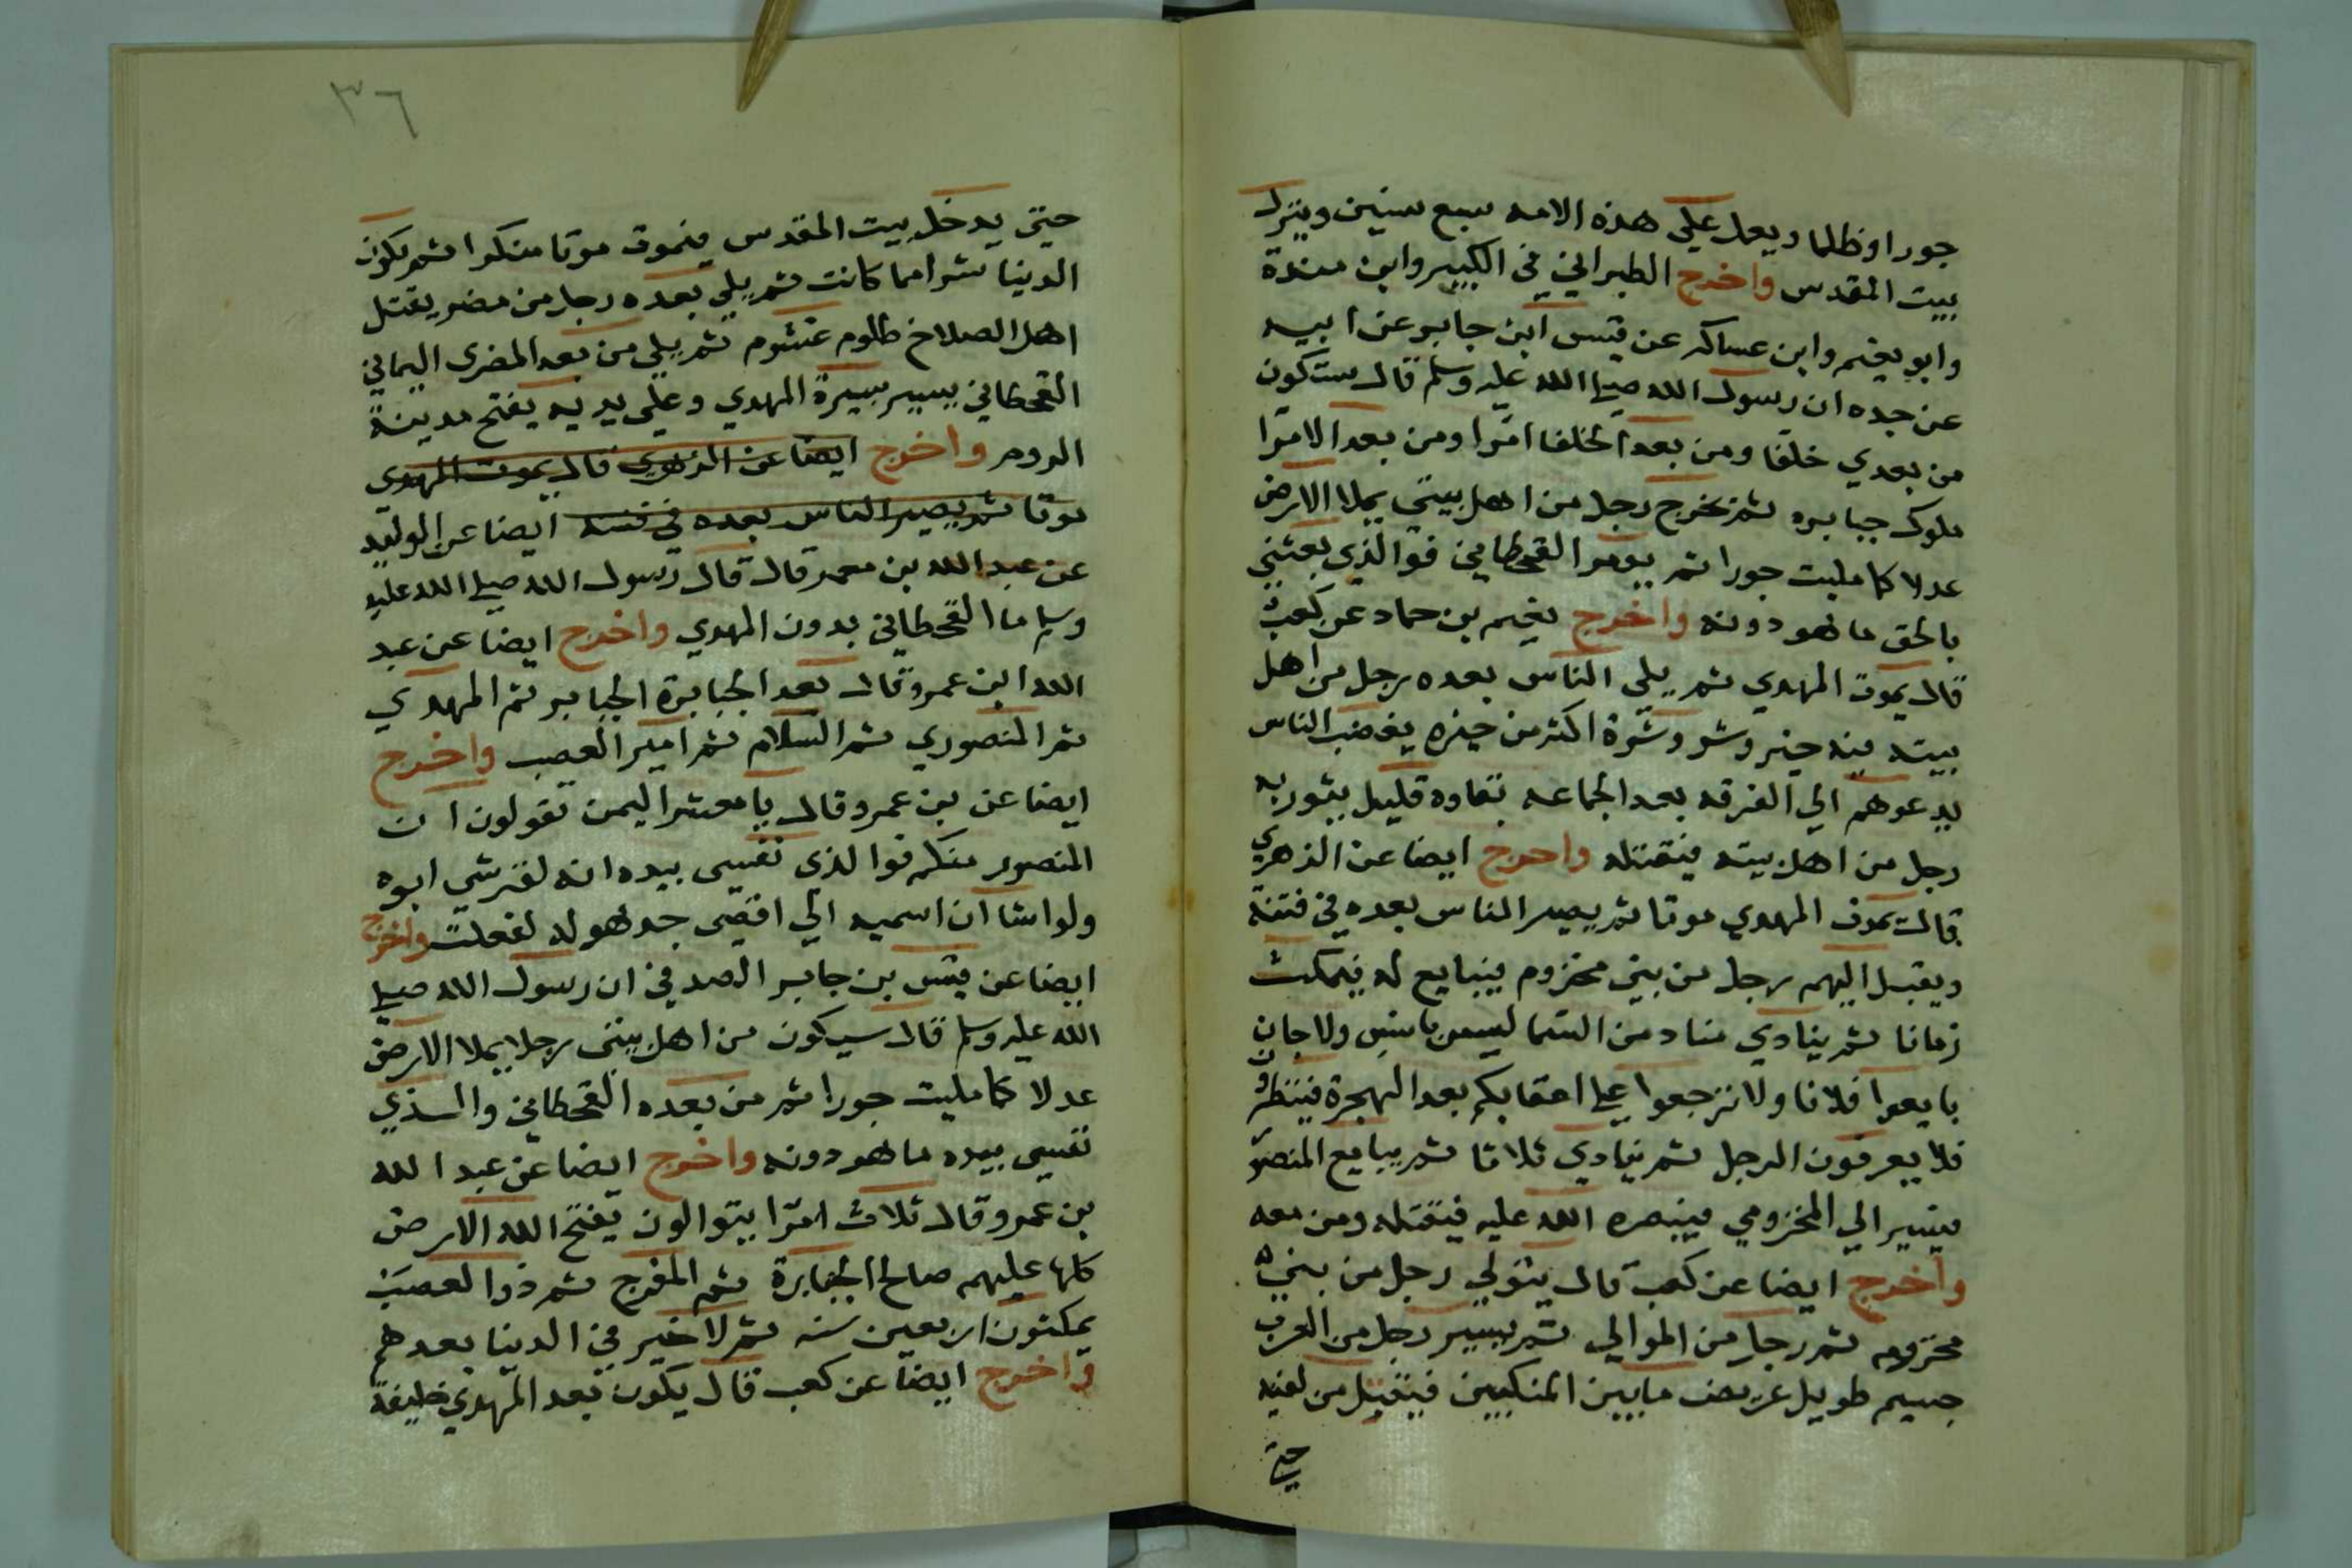 جورا وظلما ويعمل علي هذه الامه سبع سنين وينزل
بيت المقدس واخرج الطبراني في الكبير وابن مندة
وابو نعيم وابن عساكر عن قيس ابن جابر عن ابيه
عن جده ان رسول الله صلي الله عليه وسلم قال ستكون
من بعدي خلفا ومن بعد الخلفا امرا ومن بعد الامرا
ملوك جبابره ثم يخرج رجل من اهل بيتي يملا الارض
عدلا كما مليت جورا ثم يومر القحطاني فوالذي بعثني
بالحق ما هو دونه واخرج نعيم بن حماد عن كعب
قال يموت المهدي ثم يلي الناس بعده رجل من اهل
بيته فيه خير وشر وشره اكثر من خيره يغضب الناس
يدعوهم الي الفرقه بعد الجماعه بقاوه قليل يثور به
رجل من اهل بيته فيقتله واخرج ايضا عن الزهري
قال يموت المهدي موتا ثم يصير الناس بعده في فتنة
ويقبل اليهم رجل من بني مخزوم فيبايع له فيمكث
زمانا ثم ينادي مناد من السما ليس بانس ولا جان
بايعوا فلانا ولا ترجعوا علي اعقابكم بعد الهجرة فينظرون
فلا يعرفون الرجل ثم ينادي ثلاثا ثم يبايع المنصو
فيسير الي المخزومي فينصره الله عليه فيقتله ومن معه
واخرج ايضا عن كعب قال يتولي رجل من بني
مخزوم ثم رجل من الموالي ثم يسير رجل من العرب
جسيم طويل عريض ما بين المنكبين فيقتل من لقيه
حتي
٣٦
حتي يدخل بيت المقدس فيموت موتا منكرا ثم يكون
الدنيا شرا مما كانت ثم يلي بعده رجل من مضر يقتل
اهل الصلاح ظلوم غشوم ثم يلي من بعد المضري اليماني
القحطاني يسير سيرة المهدي وعلي يديه يفتح مدينة
الروم واخرج ايضا عن الزهري قال يموت المهدي
موتا ثم يصير الناس بعده في فتنه ايضا عن الوليد
عن عبد الله بن معمر قال قال رسول الله صلي الله عليه
وسلم ما القحطاني بدون المهدي واخرج ايضا عن عبد
الله ابن عمرو قال بعد الجبابرة الجابر ثم المهدي
ثم المنصوري ثم السلام ثم امير العصب واخرج
ايضا عن بن عمرو قال يا معشر اليمن تقولون ان
المنصور منكم فوالذي نفسي بيده انه لقرشي ابوه
ولو اشا ان اسميه الي اقصي جد هو له لفعلت واخرج
ايضا عن قيس بن جابر الصدفي ان رسول الله صلي
الله عليه وسلم قال سيكون من اهل بيتي رجلا يملا الارض
عدلا كما مليت جورا ثم من بعده القحطاني والذي
نفسي بيده ما هو دونه واخرج ايضا عن عبد الله
بن عمرو قال ثلاث امرا يتوالون يفتح الله الارض
كلها عليهم صالح الجبابرة ثم المفرج ثم ذو العصب
يمكثون اربعين سنه ثم لا خير في الدنيا بعدهم
واخرج ايضا عن كعب قال يكون بعد المهدي خليفة